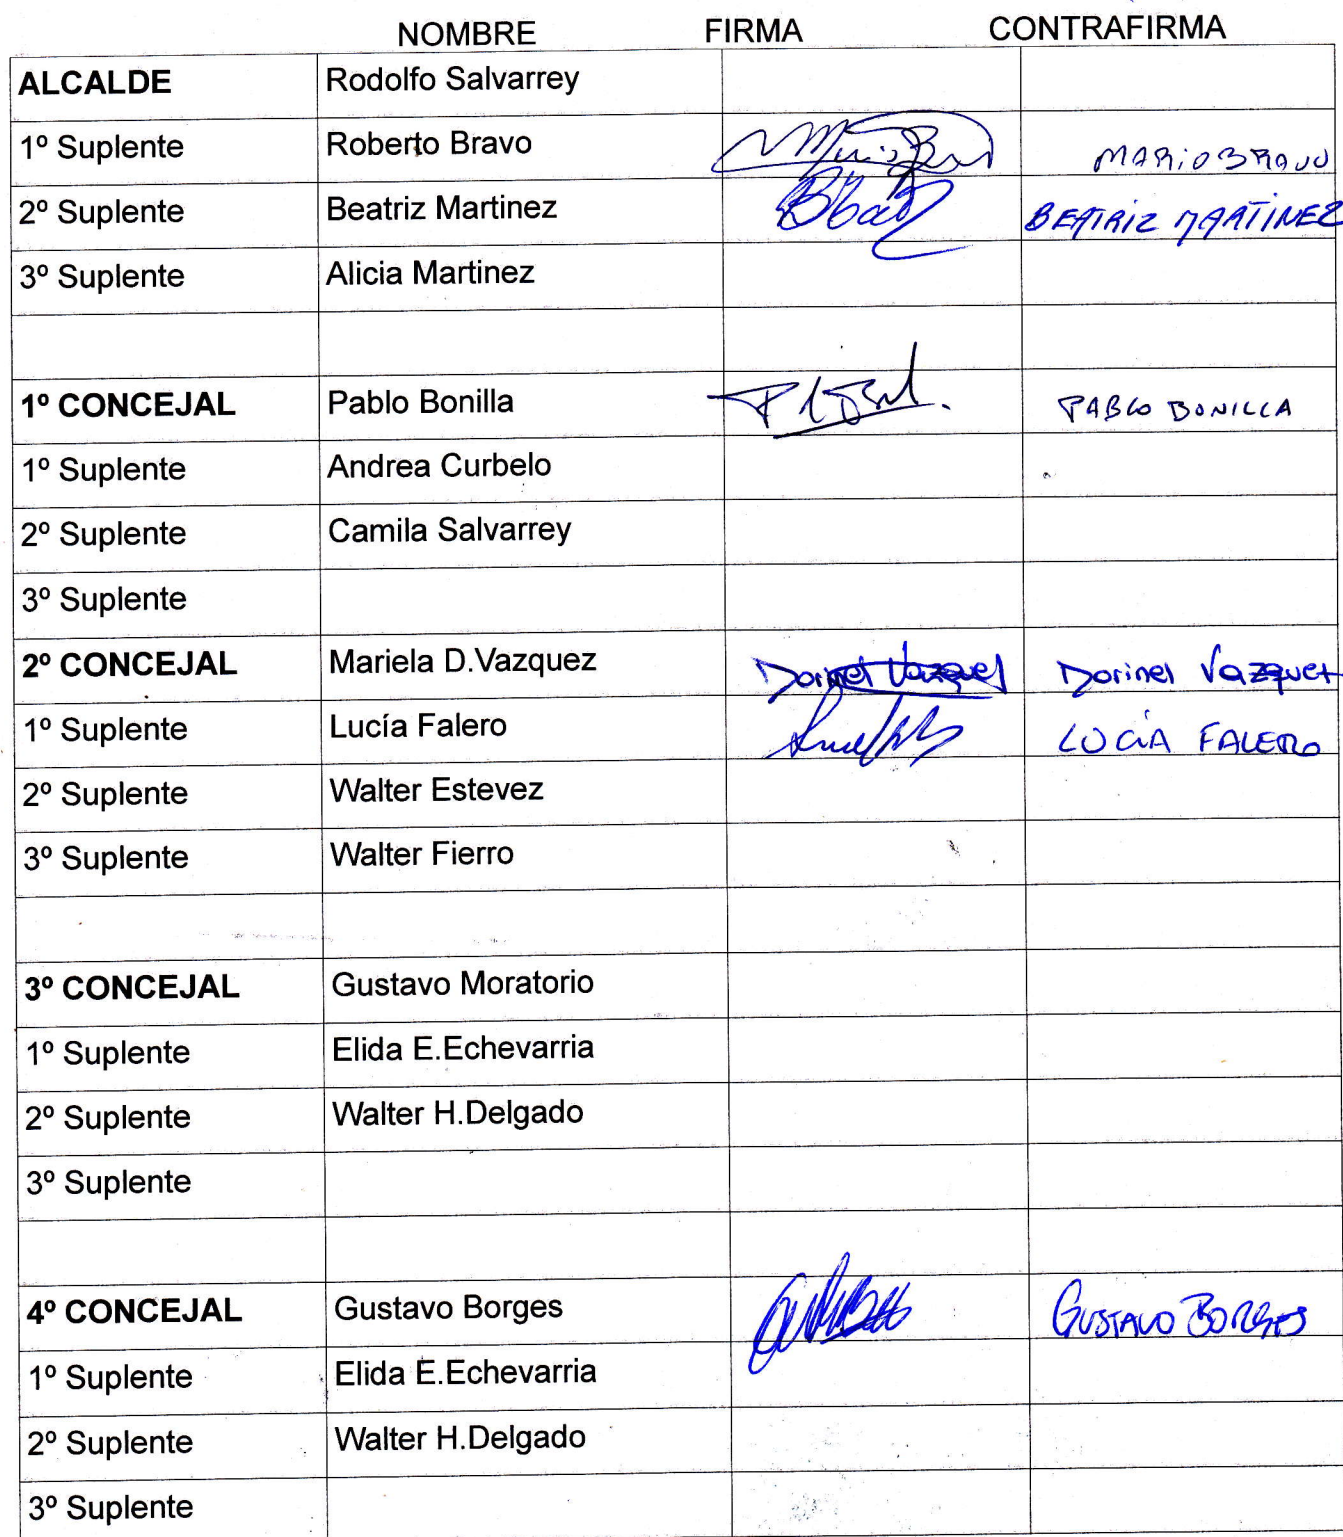 NOMBRE FIRMA CONTRAFIRMA
ALCALDE Rodolfo Salvarrey
1º Suplente Roberto Bravo MARIO BRAVO
2º Suplente Beatriz Martinez BEATRIZ MARTINEZ
3º Suplente Alicia Martinez
1º CONCEJAL Pablo Bonilla PABLO BONILLA
1º Suplente Andrea Curbelo
2º Suplente Camila Salvarrey
3º Suplente
2º CONCEJAL Mariela D.Vazquez Dorinel Vazquez Dorinel Vazquez
1º Suplente Lucía Falero LUCÍA FALERO
2º Suplente Walter Estevez
3º Suplente Walter Fierro
3º CONCEJAL Gustavo Moratorio
1º Suplente Elida E.Echevarria
2º Suplente Walter H.Delgado
3º Suplente
4º CONCEJAL Gustavo Borges GUSTAVO BORGES
1º Suplente Elida E.Echevarria
2º Suplente Walter H.Delgado
3º Suplente